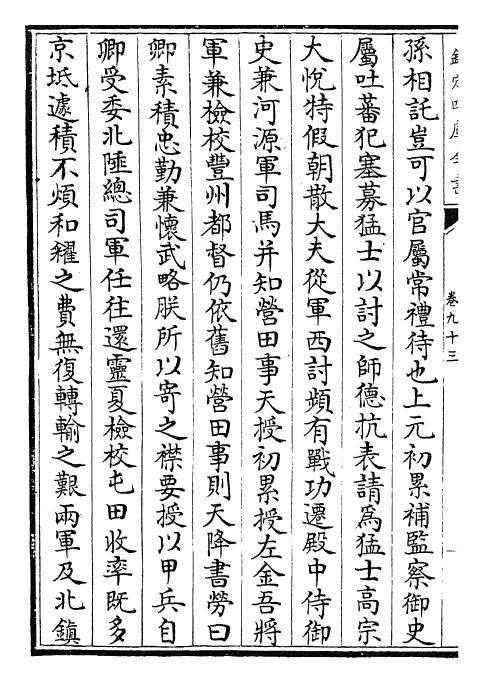 欽定四庫全書
卷九十三
孫相託豈可以官屬常禮待也上元初累補監察御史
屬吐蕃犯塞募猛士以討之師德抗表請為猛士髙宗
大悅特假朝散大夫從軍西討頻有戰功遷殿中侍御
史兼河源軍司馬并知營田事天授初累授左金吾將
軍兼檢校豐州都督仍依舊知營田事則天降書勞曰
卿素積忠勤兼懷武略朕所以寄之襟要授以甲兵自
卿受委北陲總司軍任往還靈夏檢校屯田收率既多
京坻遽積不煩和糴之費無復轉輸之艱兩軍及北鎮